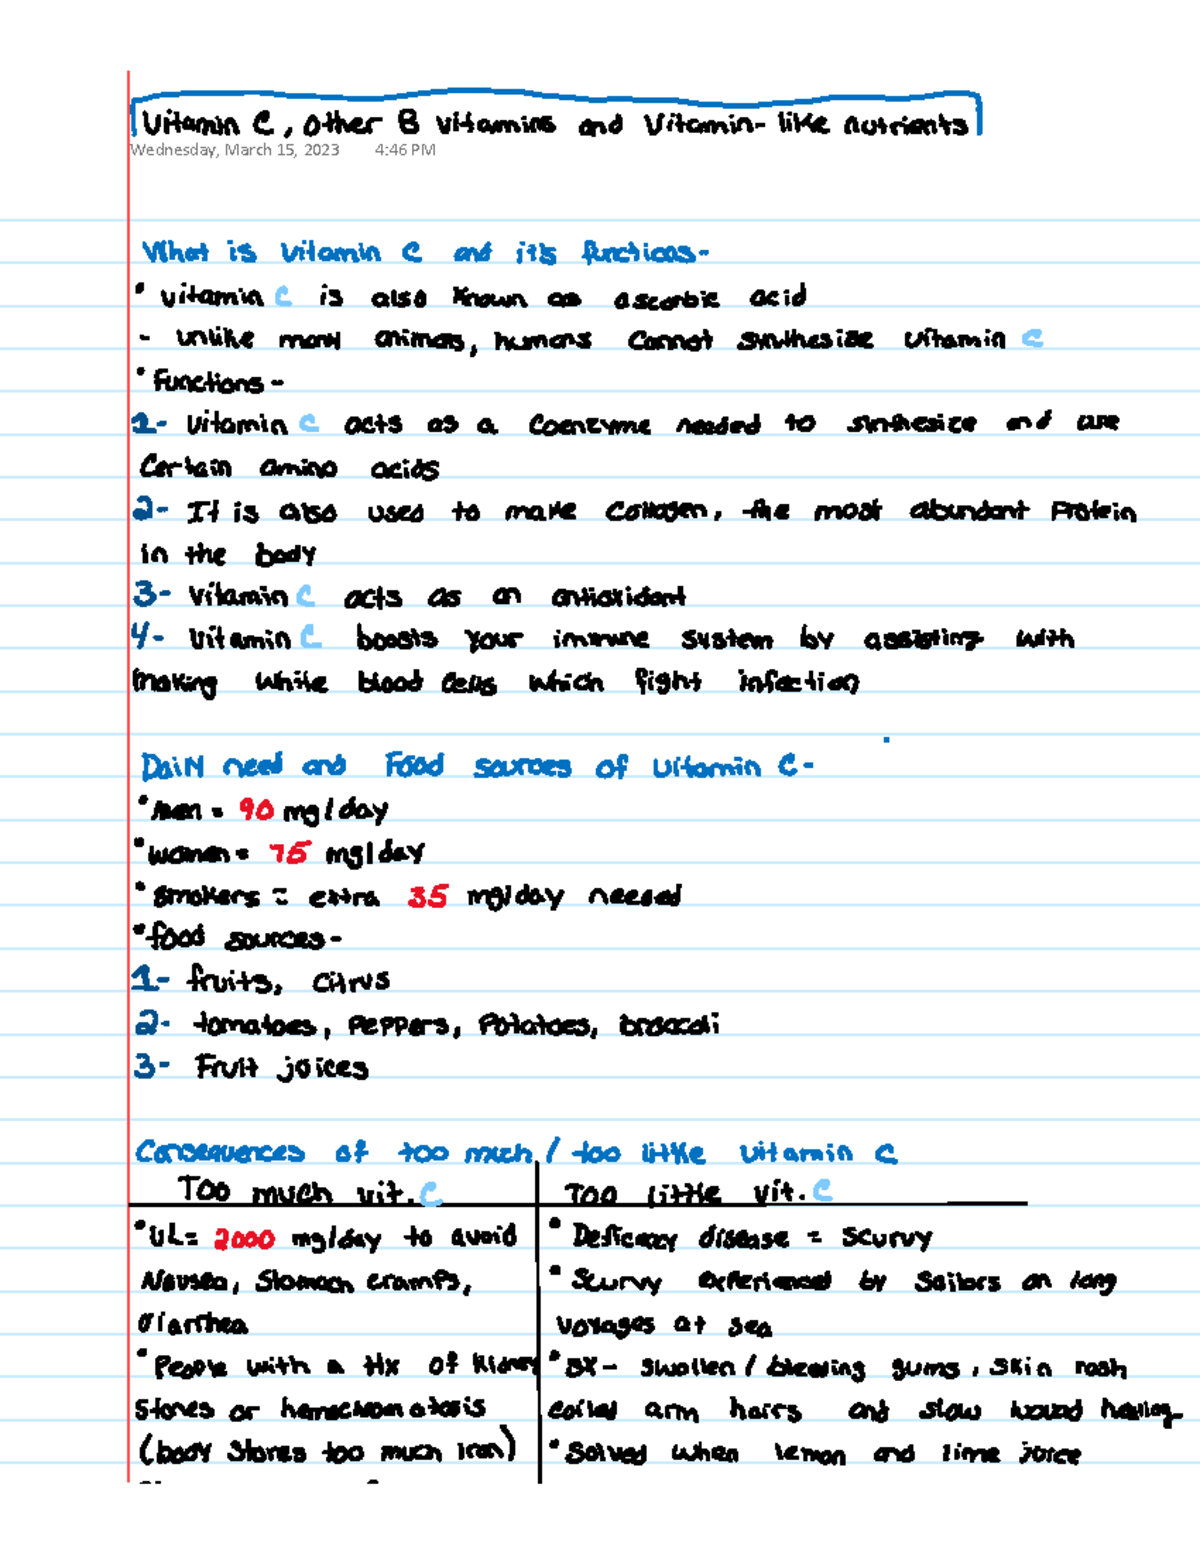 Vitamin C, Other B vitamins and Vitamin-like nutrients
Wednesday, March 15, 2023 4:46 PM
What is Vitamin C and it's functions-
• vitamin C is also known as ascorbic acid
- unlike many animals, humans cannot synthesize vitamin C
• Functions-
1- Vitamin C acts as a coenzyme needed to synthesize and use
certain amino acids
2- It is also used to make collagen, the most abundant Protein
in the body
3- Vitamin C acts as an antioxidant
4- Vitamin C boosts your immune system by assisting with
making white blood cells which fight infection
Daily need and Food sources of vitamin C-
• men = 90 mg/day
• women = 75 mg/day
• smokers = extra 35 mg/day needed
• food sources-
1- fruits, citrus
2- tomatoes, peppers, Potatoes, broccoli
3- Fruit joices
Consequences of too much / too little vitamin C
Too much vit. C
• UL= 2000 mg/day to avoid
Nausea, Stomach cramps,
diarrhea
• People with a Hx of kidney
Stones or hemochromatosis
(body Stores too much iron)
Too little vit. C
• Deficiency disease = Scurvy
• Scurvy experienced by Sailors on long
voyages at sea
• SX- swollen / bleeding gums, skin rash
coiled arm hairs and slow wound healing
• Solved when lemon and lime joice